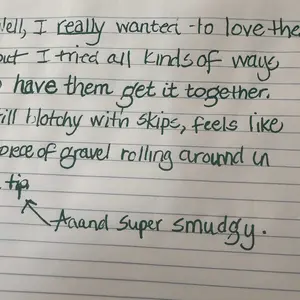 Well, I really wanted to love the
but I tried all kinds of ways
have them get it together.
ill blotchy with skips, feels like
piece of gravel rolling around in
tip
Aaand super smudgy.